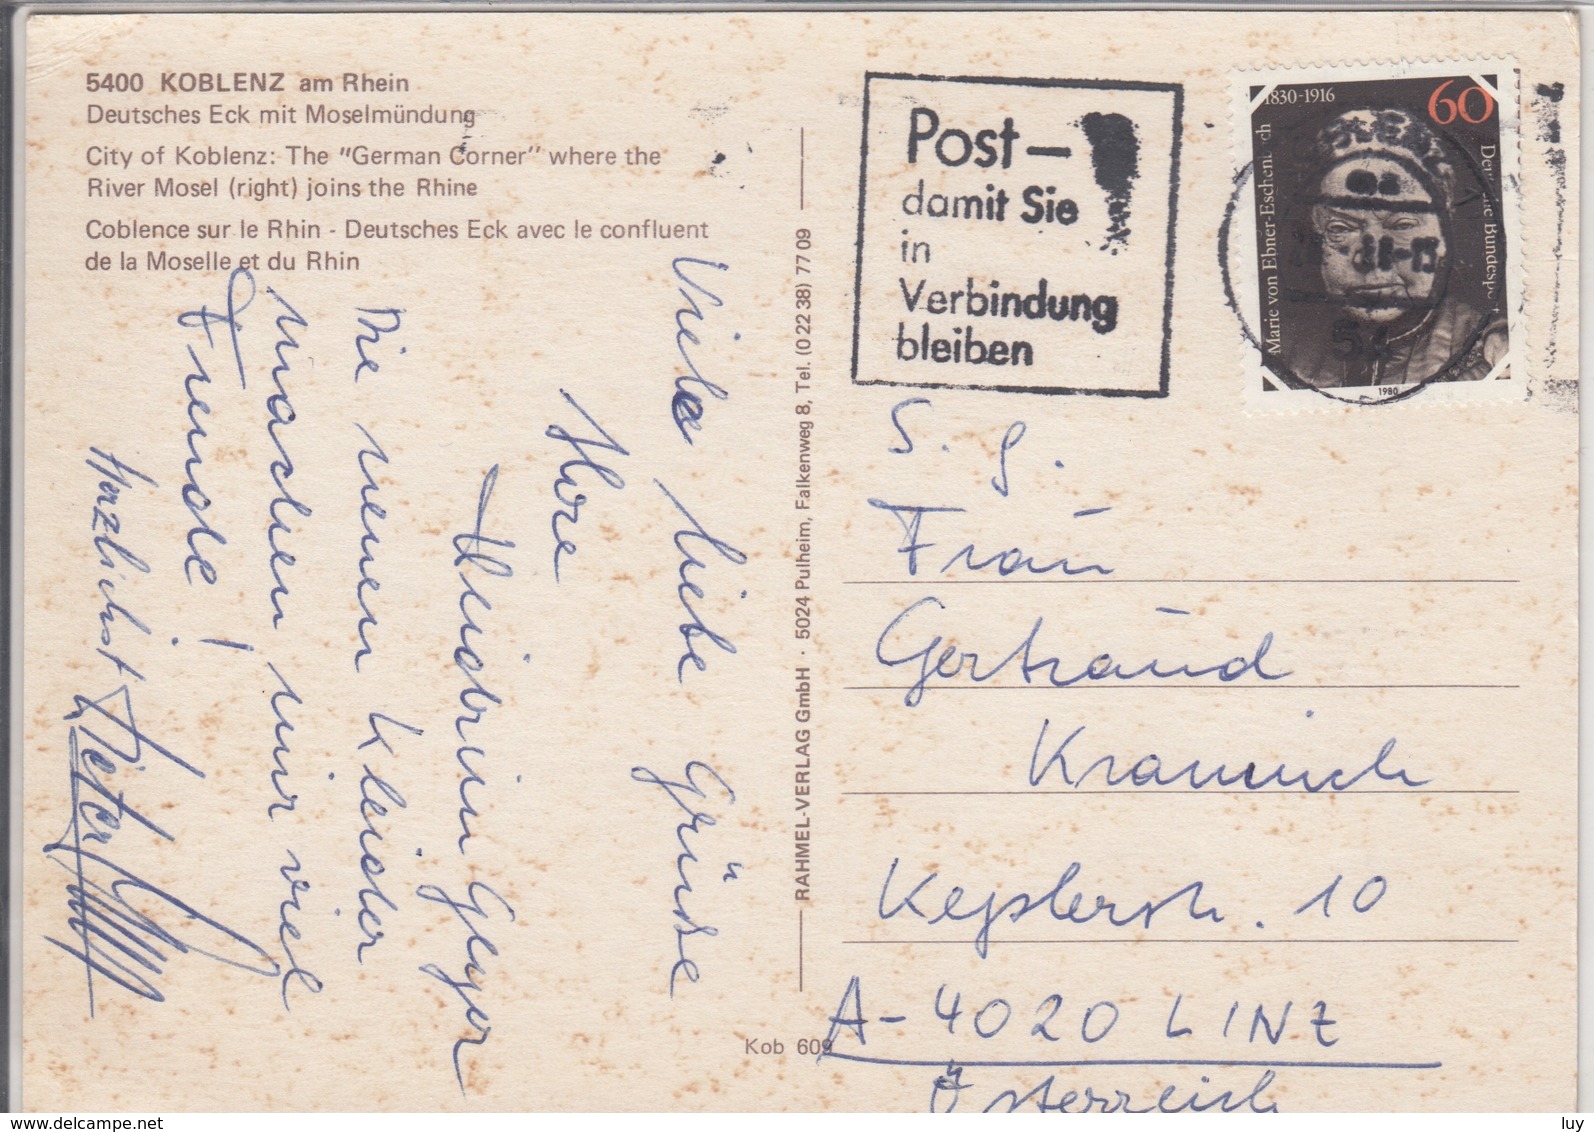 5400 KOBLENZ am Rhein
Deutsches Eck mit Moselmündung
City of Koblenz: The "German Corner" where the
River Mosel (right) joins the Rhine
Coblence sur le Rhin - Deutsches Eck avec le confluent
de la Moselle et du Rhin
Viele liebe Grüße
Heidrun
Die neuen Kleider
machen mir viel
Freude!
Herzlichst
Dieter
RAHMEL-VERLAG GmbH · 5024 Pulheim, Falkenweg 8, Tel. (0 22 38) 77 09
Kob 609
Post –
damit Sie
in
Verbindung
bleiben
1830-1916
60
Marie von Ebner-Eschenbach
Deutsche Bundespost
1980
S. g.
Frau
Gertraud
Krammich
Keplerstr. 10
A-4020 LINZ
Österreich
delcampe.net
luy